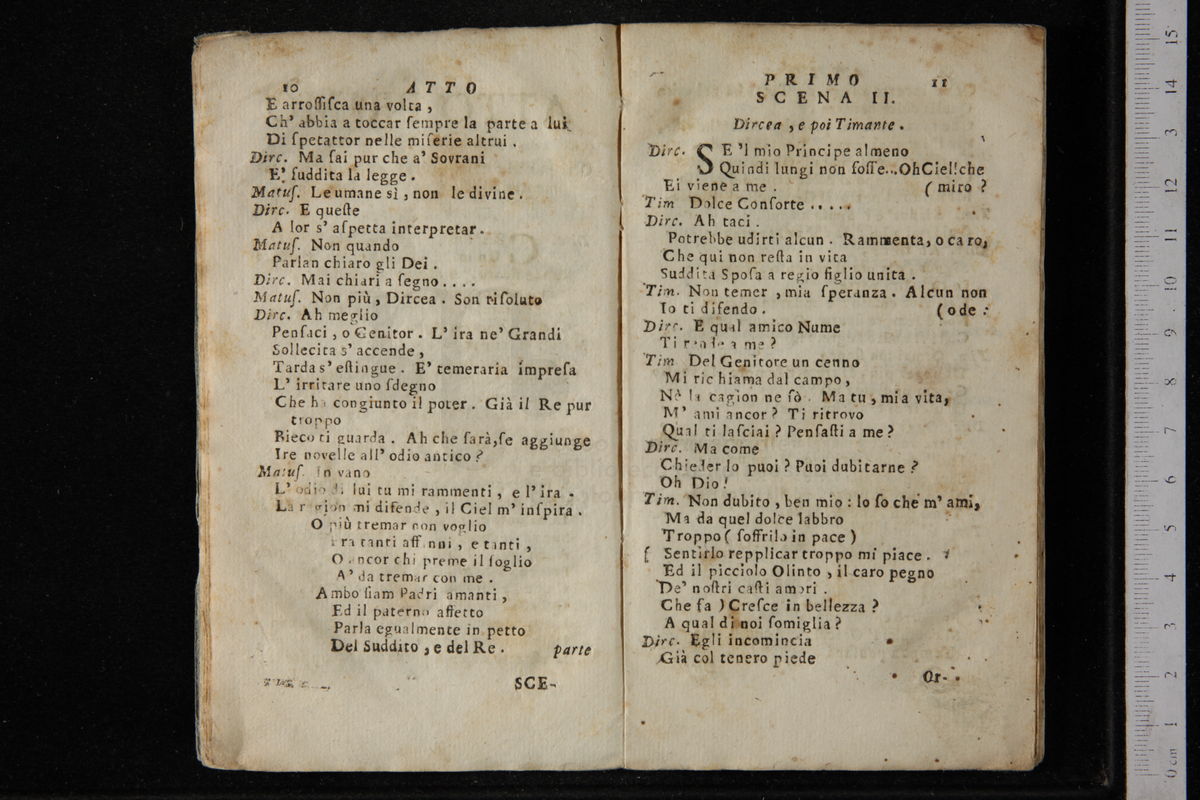 10 ATTO
E arroſſiſca una volta ,
Ch' abbia a toccar ſempre la parte a lui
Di ſpetattor nelle miſerie altrui .
Dirc. Ma ſai pur che a' Sovrani
E' ſuddita la legge .
Matuſ. Le umane sì , non le divine .
Dirc. E queſte
A lor s' aſpetta interpretar .
Matuſ. Non quando
Parlan chiaro gli Dei .
Dirc. Mai chiari a ſegno . . . .
Matuſ. Non più , Dircea . Son riſoluto
Dirc. Ah meglio
Penſaci , o Genitor . L' ira ne' Grandi
Sollecita s' accende ,
Tarda s' eſtingue . E' temeraria impreſa
L' irritare uno ſdegno
Che ha congiunto il poter . Già il Re pur
troppo
Bieco ti guarda . Ah che ſarà,ſe aggiunge
Ire novelle all' odio antico ?
Matuſ. In vano
L' odio di lui tu mi rammenti , e l' ira .
La region mi difende , il Ciel m' inſpira .
O più tremar non voglio
Fra tanti affanni , e tanti ,
O ancor chi preme il ſoglio
A' da tremar con me .
Ambo ſiam Padri amanti ,
Ed il paterno affetto
Parla egualmente in petto
Del Suddito , e del Re . parte
SCE-
PRIMO 11
SCENA II.
Dircea , e poi Timante .
Dirc. SE 'l mio Principe almeno
Quindi lungi non foſſe...OhCiel!che
Ei viene a me . ( miro ?
Tim Dolce Conſorte . . . . .
Dirc. Ah taci .
Potrebbe udirti alcun . Rammenta, o caro,
Che qui non reſta in vita
Suddita Spoſa a regio figlio unita .
Tim. Non temer , mia ſperanza . Alcun non
Io ti difendo . ( ode :
Dirc. E qual amico Nume
Ti rende a me ?
Tim Del Genitore un cenno
Mi ric hiama dal campo ,
Nè la cagion ne ſò . Ma tu , mia vita,
M' ami ancor ? Ti ritrovo
Qual ti laſciai ? Penſaſti a me ?
Dirc. Ma come
Chieder lo puoi ? Puoi dubitarne ?
Oh Dio !
Tim. Non dubito , ben mio : lo ſo che m' ami,
Ma da quel dolce labbro
Troppo ( ſoffrilo in pace )
( Sentirlo repplicar troppo mi piace .
Ed il picciolo Olinto , il caro pegno
De' noſtri caſti amori .
Che fa ) Creſce in bellezza ?
A qual di noi ſomiglia ?
Dirc. Egli incomincia
Già col tenero piede
Or-